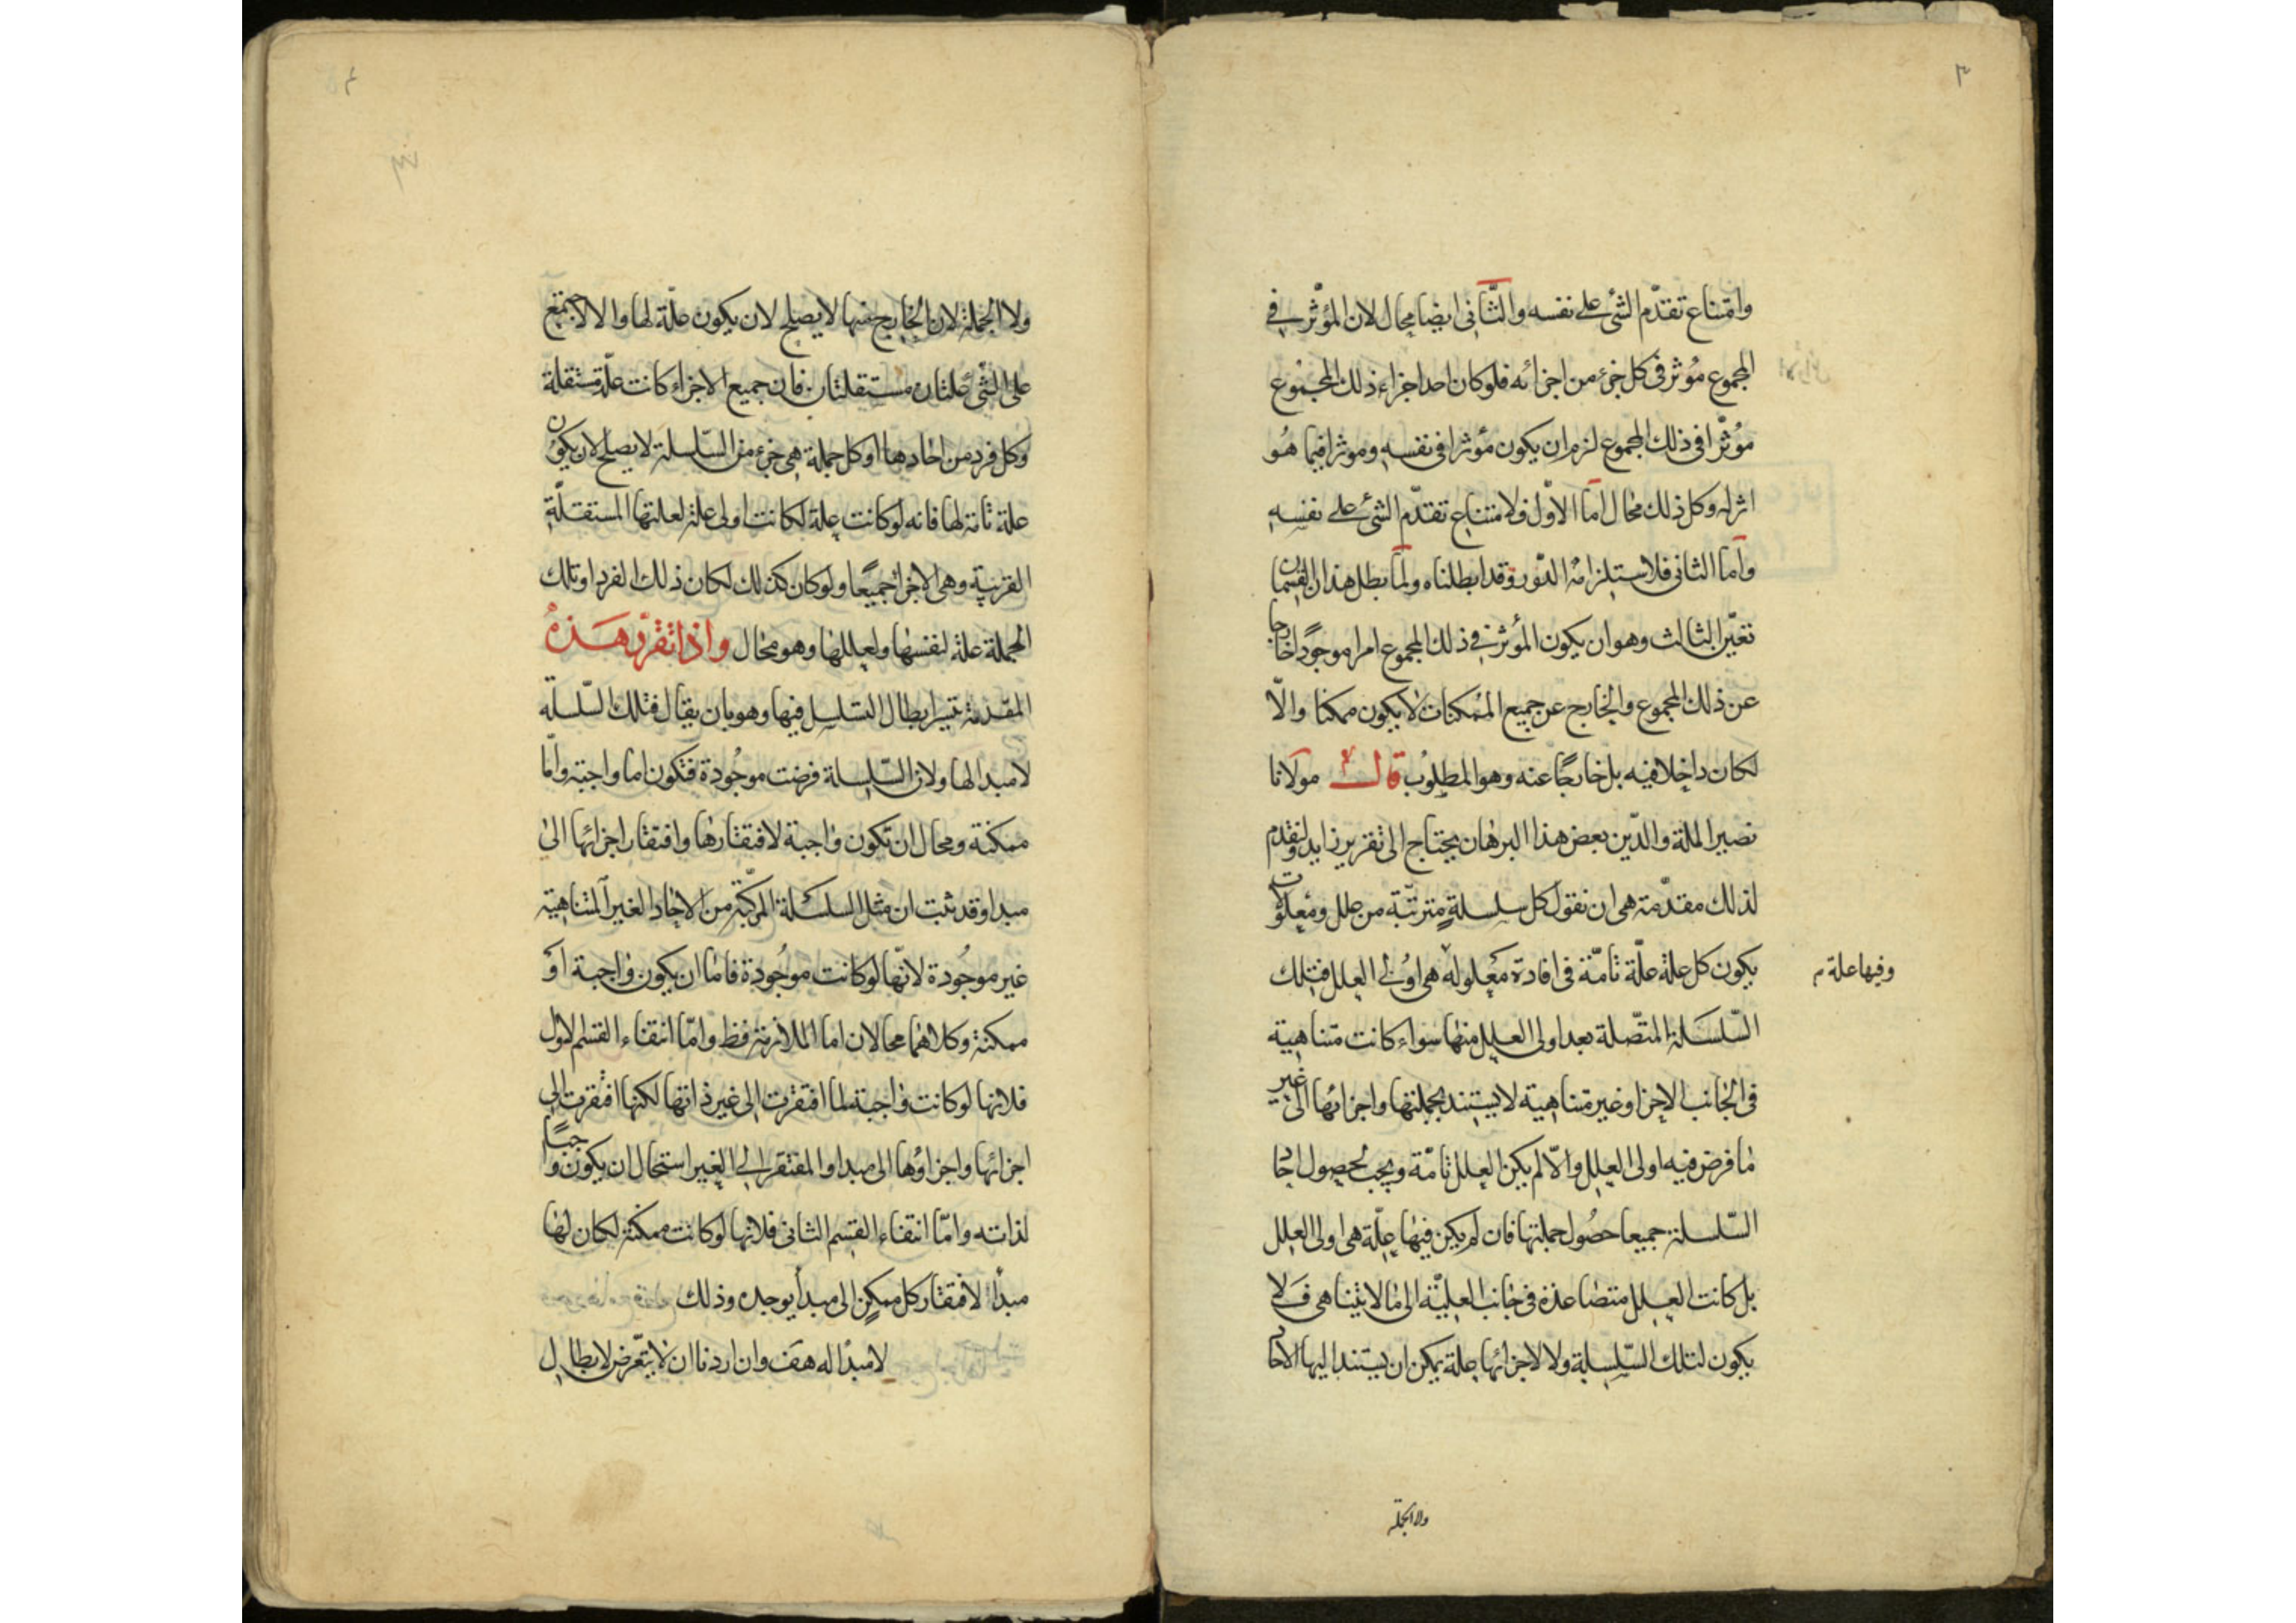 ٣
وامتناع تقدّم الشئ على نفسه والثّانى ايضا محال لان المؤثّر فى
المجموع مؤثر فى كل جزء من اجزائه فلو كان احد اجزاء ذلك المجموع
مؤثّرا فى ذلك المجموع لزم ان يكون مؤثرا فى نفسه وموثرا فيما هو
اثر له وكل ذلك محال امّا الاوّل فلامتناع تقدّم الشئ على نفسه
وامّا الثانى فلاستلزامه الدّور وقد ابطلناه ولمّا بطل هذان القسمان
تعيّن الثالث وهو ان يكون المؤثر فى ذلك المجموع امرا موجودًا خارجا
عن ذلك المجموع والخارج عن جميع الممكنات لا يكون ممكنا والّا
لكان داخلا فيه بل خارجًا عنه وهو المطلوب قال مولانا
نصير الملة والدّين بعض هذا البرهان يحتاج الى تقرير زايد ولنقدم
لذلك مقدّمة هى ان نقول كل سلسلةٍ مترتّبة من علل ومعلولات
يكون كل علة علّة تامّة فى افادة معلوله هى اولى العلل فتلك
وفيها علة م
السّلسلة المتّصلة بعد اولى العلل منها سواء كانت متناهية
فى الجانب الاخر او غير متناهية لا يستند بجملتها واجزائها الى غير
ما فرض فيه اولى العلل والّا لم يكن العلل تامّة ويجب لحصول احاد
السّلسلة جميعا حصُول جملتها فان لم يكن فيها علّة هى اولى العلل
بل كانت العلل متصاعدة فى جانب العليّة الى ما لا يتناهى فلا
يكون لتلك السّلسلة ولا لاجزائها علة يمكن ان يستند اليها الاحاد
ولا الجملة
٤
ولا الجملة لان الخارج عنها لا يصلح لان يكون علّة لها والا لاجتمع
على الشّئ علتان مستقلتان فان جميع الاجزاء كانت علّة مستقلة
وكل فرد من احادها او كل جملة هى جزء من السّلسلة لا يصلح لان يكون
علة تامة لها فانه لو كانت علة لكانت اولى علة لعلتها المستقلّة
القريبة وهى الاجزا جميعًا ولو كان كذلك لكان ذلك الفرد او تلك
الجملة علة لنفسها ولعللها وهو محال واذا تقرّر هذه
المقدّمة تيسر ابطال التسلسل فيها وهو بان يقال فتلك السّلسلة
لا مبدا لها ولان السّلسلة فرضت موجُودة فتكون اما واجبة وامّا
ممكنة ومحال ان تكون واجبة لافتقارها وافتقار اجزائها الى
مبدا وقد ثبت ان مثل السلسلة المركّبة من الاحاد الغير المتناهية
غير موجُودة لانّها لو كانت موجُودة فاما ان يكون واجبة او
ممكنة وكلاهما محالان اما الملازمة فظ وامّا انتفاء القسم الاول
فلانها لو كانت واجبة لما افتقرت الى غير ذاتها لكنها افتقرت الى
اجزائها واجزاؤها الى مبدا والمفتقر الى الغير استحال ان يكون واجبًا
لذاته وامّا انتفاء القسم الثانى فلانها لو كانت ممكنة لكان لها
مبدأ لافتقار كل ممكنٍ الى مبدأ يوجده وذلك
لا مبدأ له هف وان اردنا ان لا يتعّرض لابطال